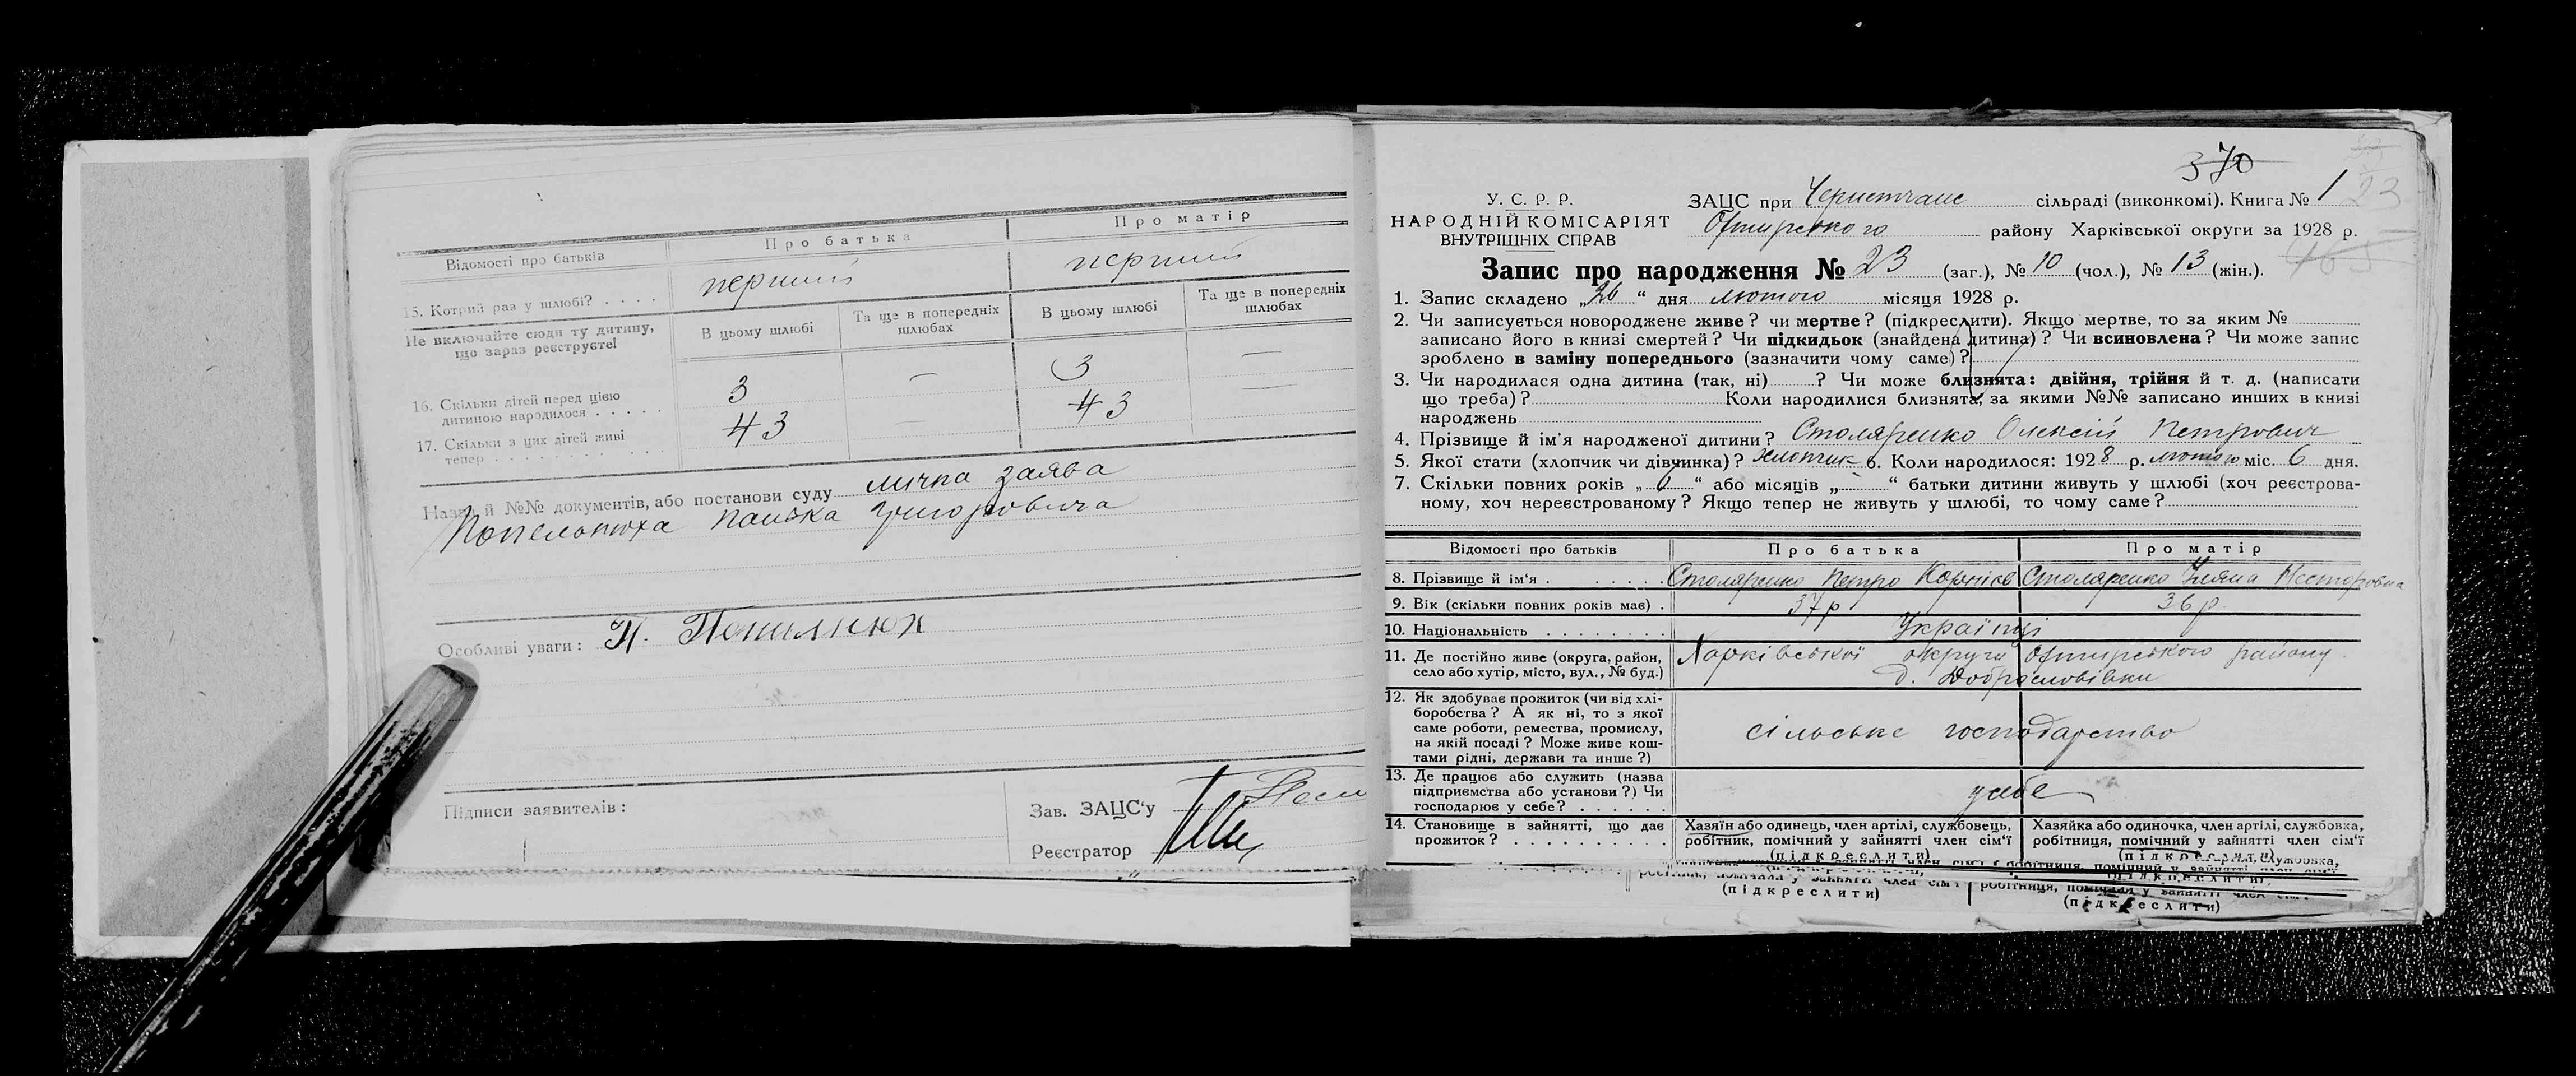 Відомості про батьків Про батька Про матір
15. Котрий раз у шлюбі? перший перший
Не включайте сюди ту дитину, що зараз реєструєте! В цьому шлюбі Та ще в попередніх шлюбах В цьому шлюбі Та ще в попередніх шлюбах
16. Скільки дітей перед цією дитиною народилося 3 — 3 —
17. Скільки з цих дітей живі тепер 3 — 3 —
Назва й №№ документів, або постанови суду лична заява
Григоровича
Особливі уваги: П.
Підписи заявителів:
Зав. ЗАЦС'у
Реєстратор
370
23
У. С. Р. Р.
НАРОДНІЙ КОМІСАРІЯТ
ВНУТРІШНІХ СПРАВ
ЗАЦС при сільраді (виконкомі). Книга № 1
району Харківської округи за 1928 р.
Запис про народження № 23 (заг.), № 10 (чол.), № 13 (жін.).
1. Запис складено „26“ дня лютого місяця 1928 р.
2. Чи записується новороджене живе? чи мертве? (підкреслити). Якщо мертве, то за яким №
записано його в книзі смертей? Чи підкидьок (знайдена дитина)? Чи всиновлена? Чи може запис
зроблено в заміну попереднього (зазначити чому саме)?
3. Чи народилася одна дитина (так, ні) ? Чи може близнята: двійня, трійня й т. д. (написати
що треба)? Коли народилися близнята, за якими №№ записано инших в книзі
народжень
4. Прізвище й ім'я народженої дитини? Столяренко Олексій Петрович
5. Якої стати (хлопчик чи дівчинка)? хлопчик 6. Коли народилося: 1928 р. лютого міс. 6 дня.
7. Скільки повних років „6“ або місяців „ “ батьки дитини живуть у шлюбі (хоч реєстрова-
ному, хоч нереєстрованому? Якщо тепер не живуть у шлюбі, то чому саме?
Відомості про батьків Про батька Про матір
8. Прізвище й ім'я Столяренко Петро Корнієв Столяренко Уляна Несторовна
9. Вік (скільки повних років має) 37 р 36 р.
10. Національність Українці
11. Де постійно живе (округа, район, село або хутір, місто, вул., № буд.) Харківської округи району
д. Доброславівки
12. Як здобуває прожиток (чи від хлі-
боробства? А як ні, то з якої
саме роботи, ремества, промислу,
на якій посаді? Може живе кош-
тами рідні, держави та инше?) сільське господарство
13. Де працює або служить (назва
підприємства або установи?) Чи
господарює у себе? у себе
14. Становище в зайнятті, що дає прожиток? Хазяїн або одинець, член артілі, службовець, робітник, помічний у зайнятті член сім'ї (підкреслити) Хазяйка або одиночка, член артілі, службовка, робітниця, помічний у зайнятті член сім'ї (підкреслити)
(підкреслити) (підкреслити)